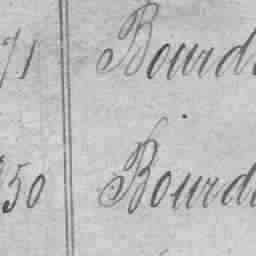 71 Bourd
50 Bourd